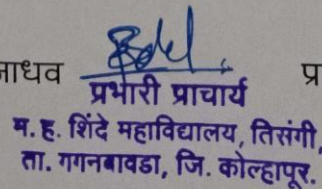 ाधव प्र
प्रभारी प्राचार्य
म. ह. शिंदे महाविद्यालय, तिसंगी,
ता. गगनबावडा, जि. कोल्हापूर.